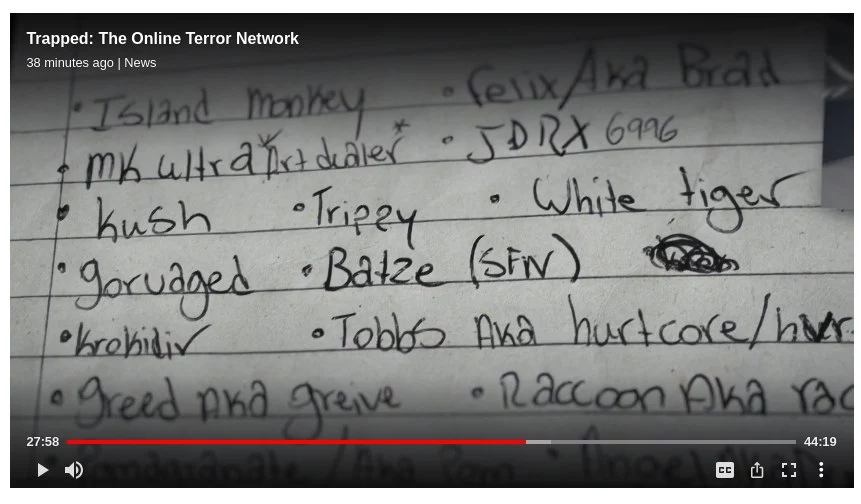 Trapped: The Online Terror Network
38 minutes ago | News
• Island monkey • felix/Aka Brad
• mk ultra *Art dealer* • JDRX 6996
• kush • Trippy • White tiger
• gorvaged • Batze (SFW)
• krokidiv • Tobbs Aka hurtcore/hur
• greed AKA greive • Raccoon AKA rac
27:58 44:19
/Aka Pom
CC